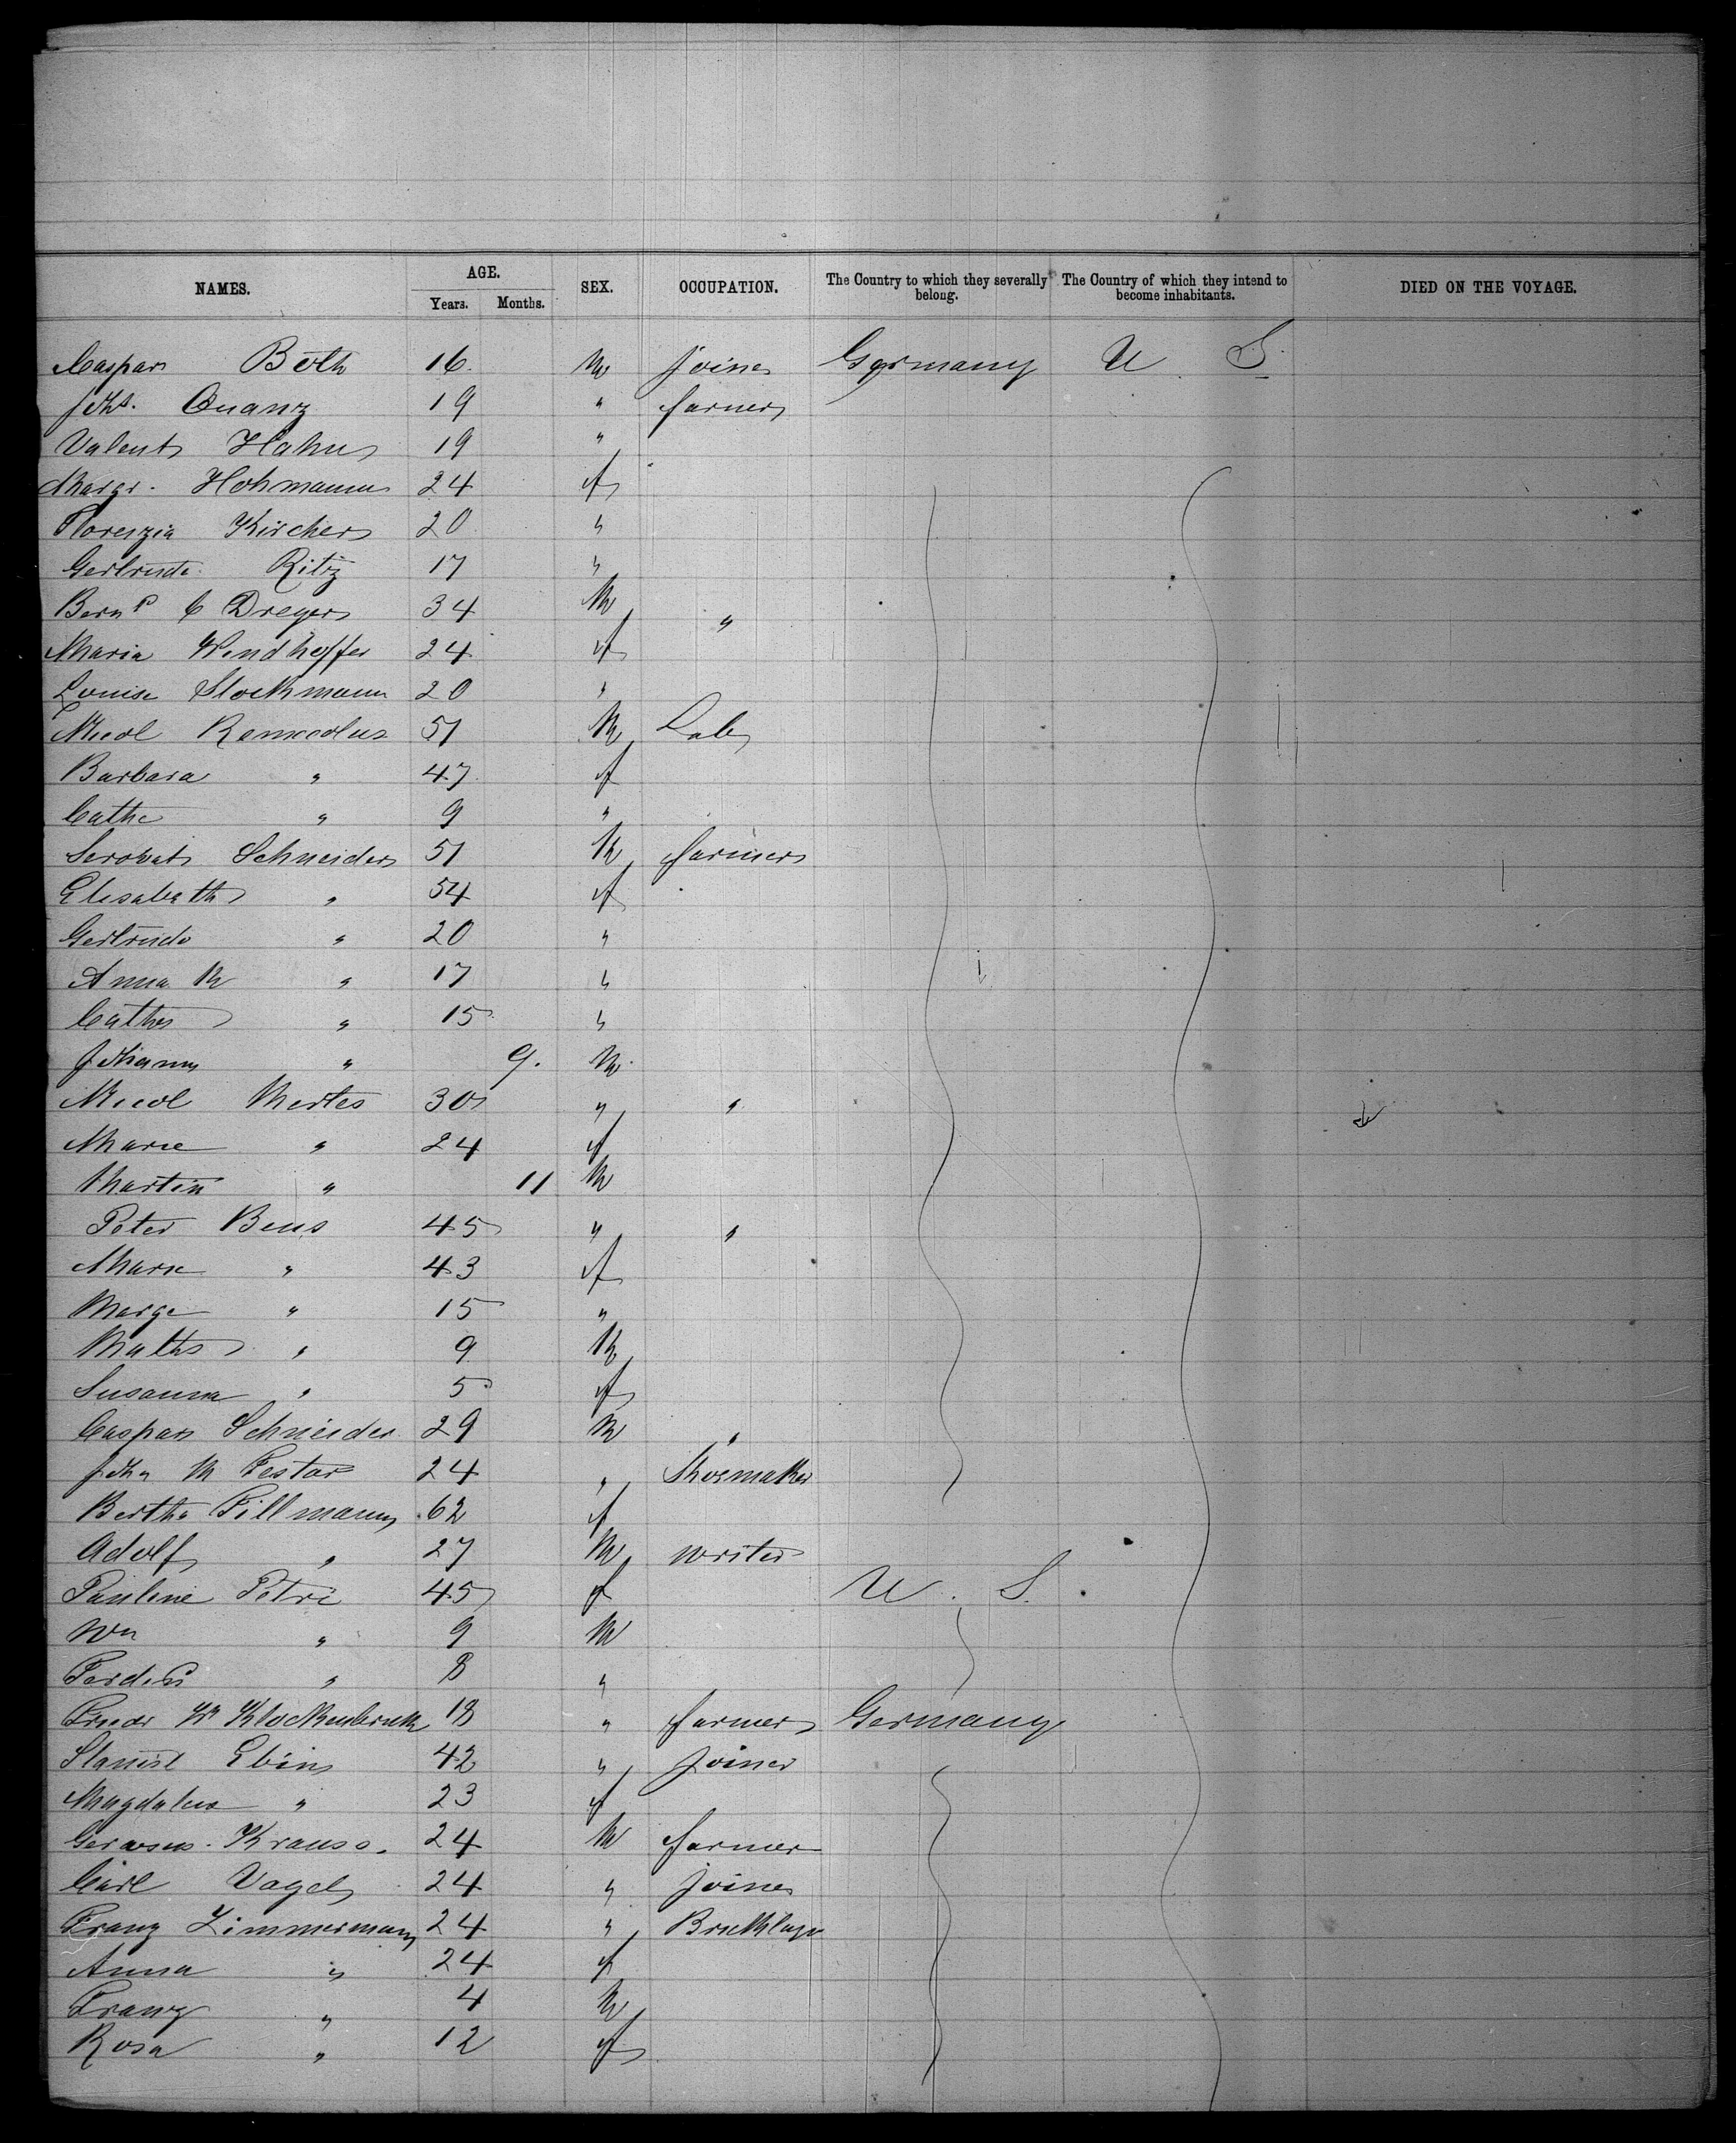 NAMES. AGE. SEX. OCCUPATION. The Country to which they severally belong. The Country of which they intend to become inhabitants. DIED ON THE VOYAGE.
Years. Months.
Caspar Both 16 M Joiner Germany U. S.
Johs. Quanz 19 " farmer
Valent Hahn 19 "
Margr. Hohmann 24 f
Florenzia Kircher 20 "
Gertrude Ritz 17 "
Bernd C Dreyer 34 M "
Maria Windhoffer 24 f
Louise Stockmann 20 "
Nicol 51 M Lab
Barbara " 47 f
Cathe " 9 "
Servat Schneider 51 M farmer
Elisabeth " 54 f
Gertrude " 20 "
Anna M " 17 "
Cathe " 15 "
Johann " 9. M
Nicol Mertes 30 " "
Marie " 24 f
Martin " 11 M
Peter Beus 45 " "
Marie " 43 f
Marge " 15 "
Maths " 9 M
Susanna " 5 f
Caspar Schneider 29 M "
Joha M Festar 24 " Shoemaker
Bertha Fillmann 62 f
Adolf " 27 M writer
Pauline Petri 45 f U. S.
Wm " 9 M
Ferdind " 8 "
Friedr Wm Klockenbruk 18 " farmer Germany
Stanisl Ebin 42 " Joiner
Magdalena " 23 f
Krauss. 24 M farmer
Carl Vogel 24 " Joiner
Franz Zimmermann 24 " Bricklayr
Anna " 24 f
Franz " 4 M
Rosa " 12 f